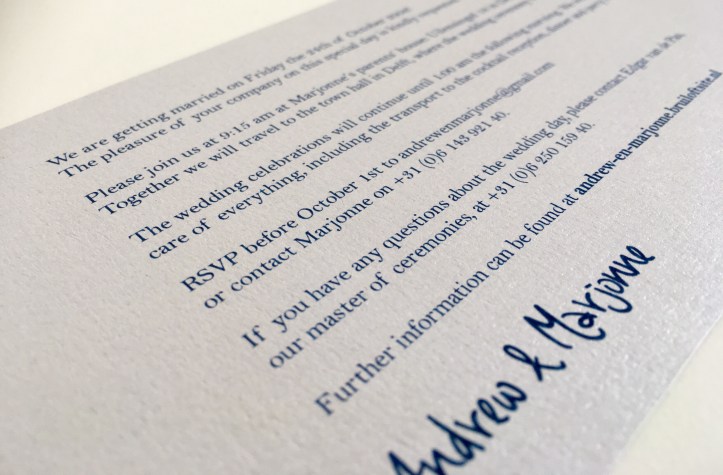 We are getting married on Friday the 24th of October
The pleasure of your company on this special day is kindly requested
Please join us at 9:15 am at Marjonne's parents' house,
Together we will travel to the town hall in Delft, where the wedding ceremony
The wedding celebrations will continue until 1:00 am the following morning. We
care of everything, including the transport to the cocktail reception, dinner and party
RSVP before October 1st to andrewenmarjonne@gmail.com
or contact Marjonne on +31 (0)6 143 921 40.
If you have any questions about the wedding day, please contact Edgar van de Pas,
our master of ceremonies, at +31 (0)6 250 159 40.
Further information can be found at andrew-en-marjonne.bruiloftsite.nl
Andrew & Marjonne